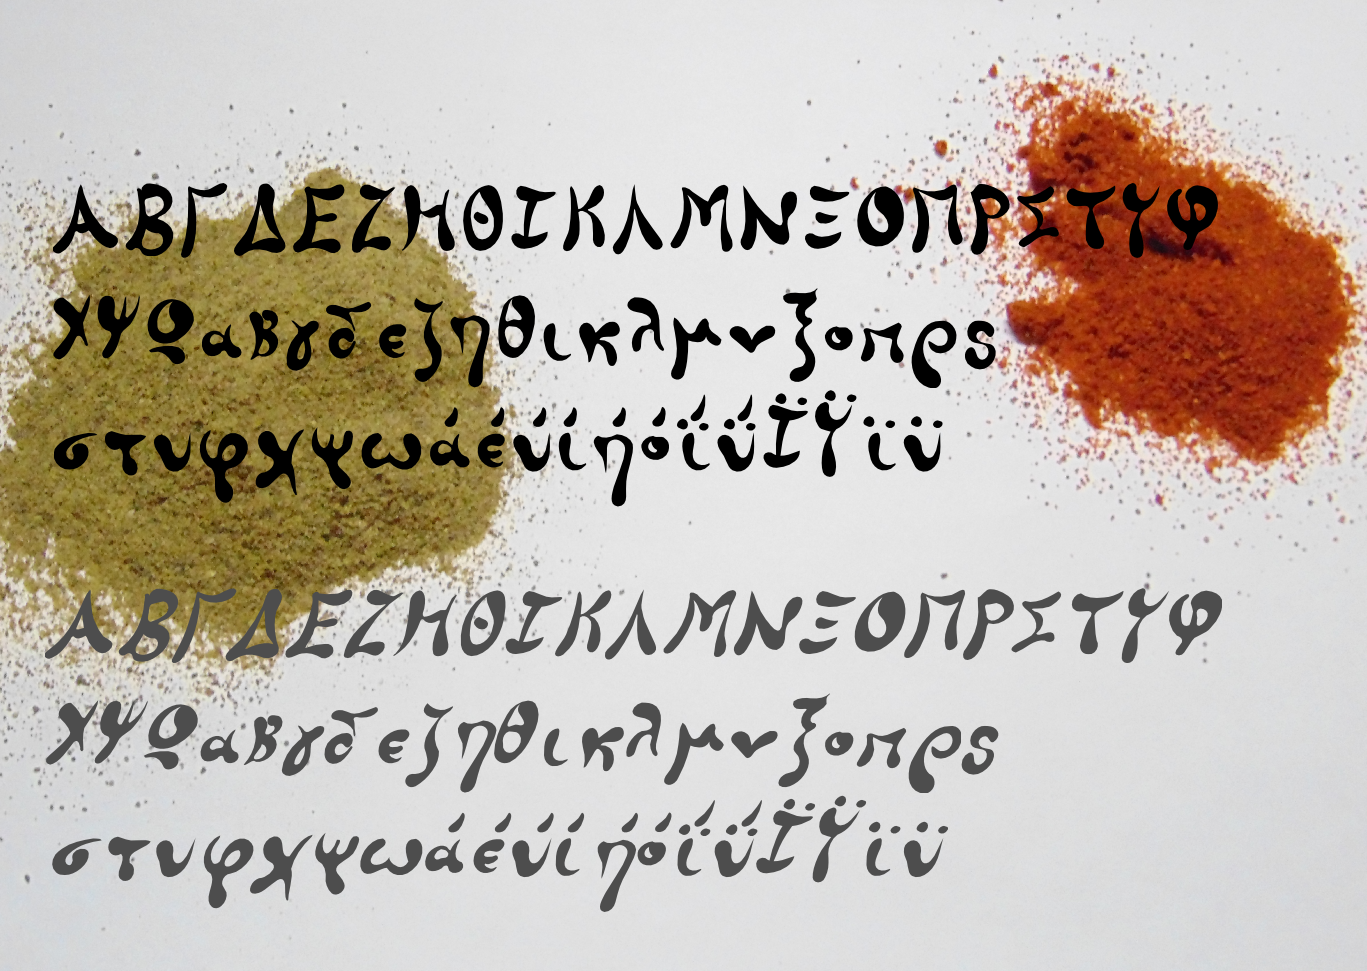 ΑΒΓΔΕΖΗΘΙΚΛΜΝΞΟΠΡΣΤΥΦ
ΧΨΩαβγδεζηθικλμνξοπρς
στυφχψωάέύίήόΐΰΪΫϊϋ
ΑΒΓΔΕΖΗΘΙΚΛΜΝΞΟΠΡΣΤΥΦ
ΧΨΩαβγδεζηθικλμνξοπρς
στυφχψωάέύίήόΐΰΪΫϊϋ